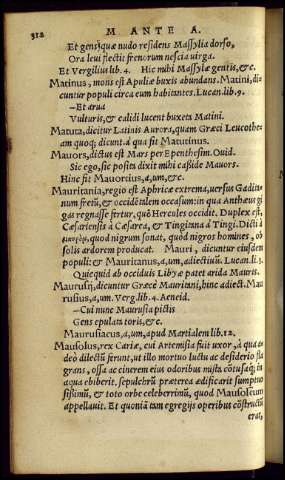 312 M ANTE A.
Et gens, quæ nudo residens Massylia dorso,
Ora leui flectit frenorum nescia uirga.
Et Vergilius lib. 4. Hic mihi Massylæ gentis, &c.
Matinus, mons est Apuliæ buxis abundans. Matini, di-
cuntur populi circa eum habitantes. Lucan. lib. 9.
—Et arua
Vulturis, & calidi lucent buxeta Matini.
Matuta, dicitur Latinis Aurora, quam Græci Leucothe-
am quoq; dicunt. à qua fit Matutinus.
Mauors, dictus est Mars per Epenthesim. Ouid.
Sic ego, sic posita dixit mihi casside Mauors.
Hinc fit Mauortius, a, um, &c.
Mauritania, regio est Aphricæ extrema, uersus Gadita-
num fretū, & occidētalem occasum: in qua Anthæus gi
gas regnasse fertur, quē Hercules occidit. Duplex est,
Cæsariensis à Cæsarea, & Tingitana à Tingi. Dicti à
quod nigrum sonat, quod nigros homines, ob
solis ardorem producat. Mauri, dicuntur eiusdem
populi: & Mauritanus, a, um, adiectiuū. Lucan. li. 3.
Quicquid ab occiduis Libyæ patet arida Mauris.
Maurusij, dicuntur Græcè Mauritani, hinc adiect. Mau
rusius, a, um. Verg. lib. 4. Aeneid.
—Cui nunc Maurusia pictis
Gens epulata toris, &c.
Maurusiacus, a, um, apud Martialem lib. 12.
Mausolus, rex Cariæ, cui Artemisia fuit uxor, à qua a-
deò dilectū ferunt, ut illo mortuo luctu ac desiderio fla
grans, ossa ac cinerem eius odoribus mista cōtusaq; in
aqua ebiberit. sepulchrū præterea ædificarit sumptuo
sissimū, & toto orbe celeberrimū, quod Mausoleum
appellauit. Et quoniā tam egregijs operibus cōstructū
erat,